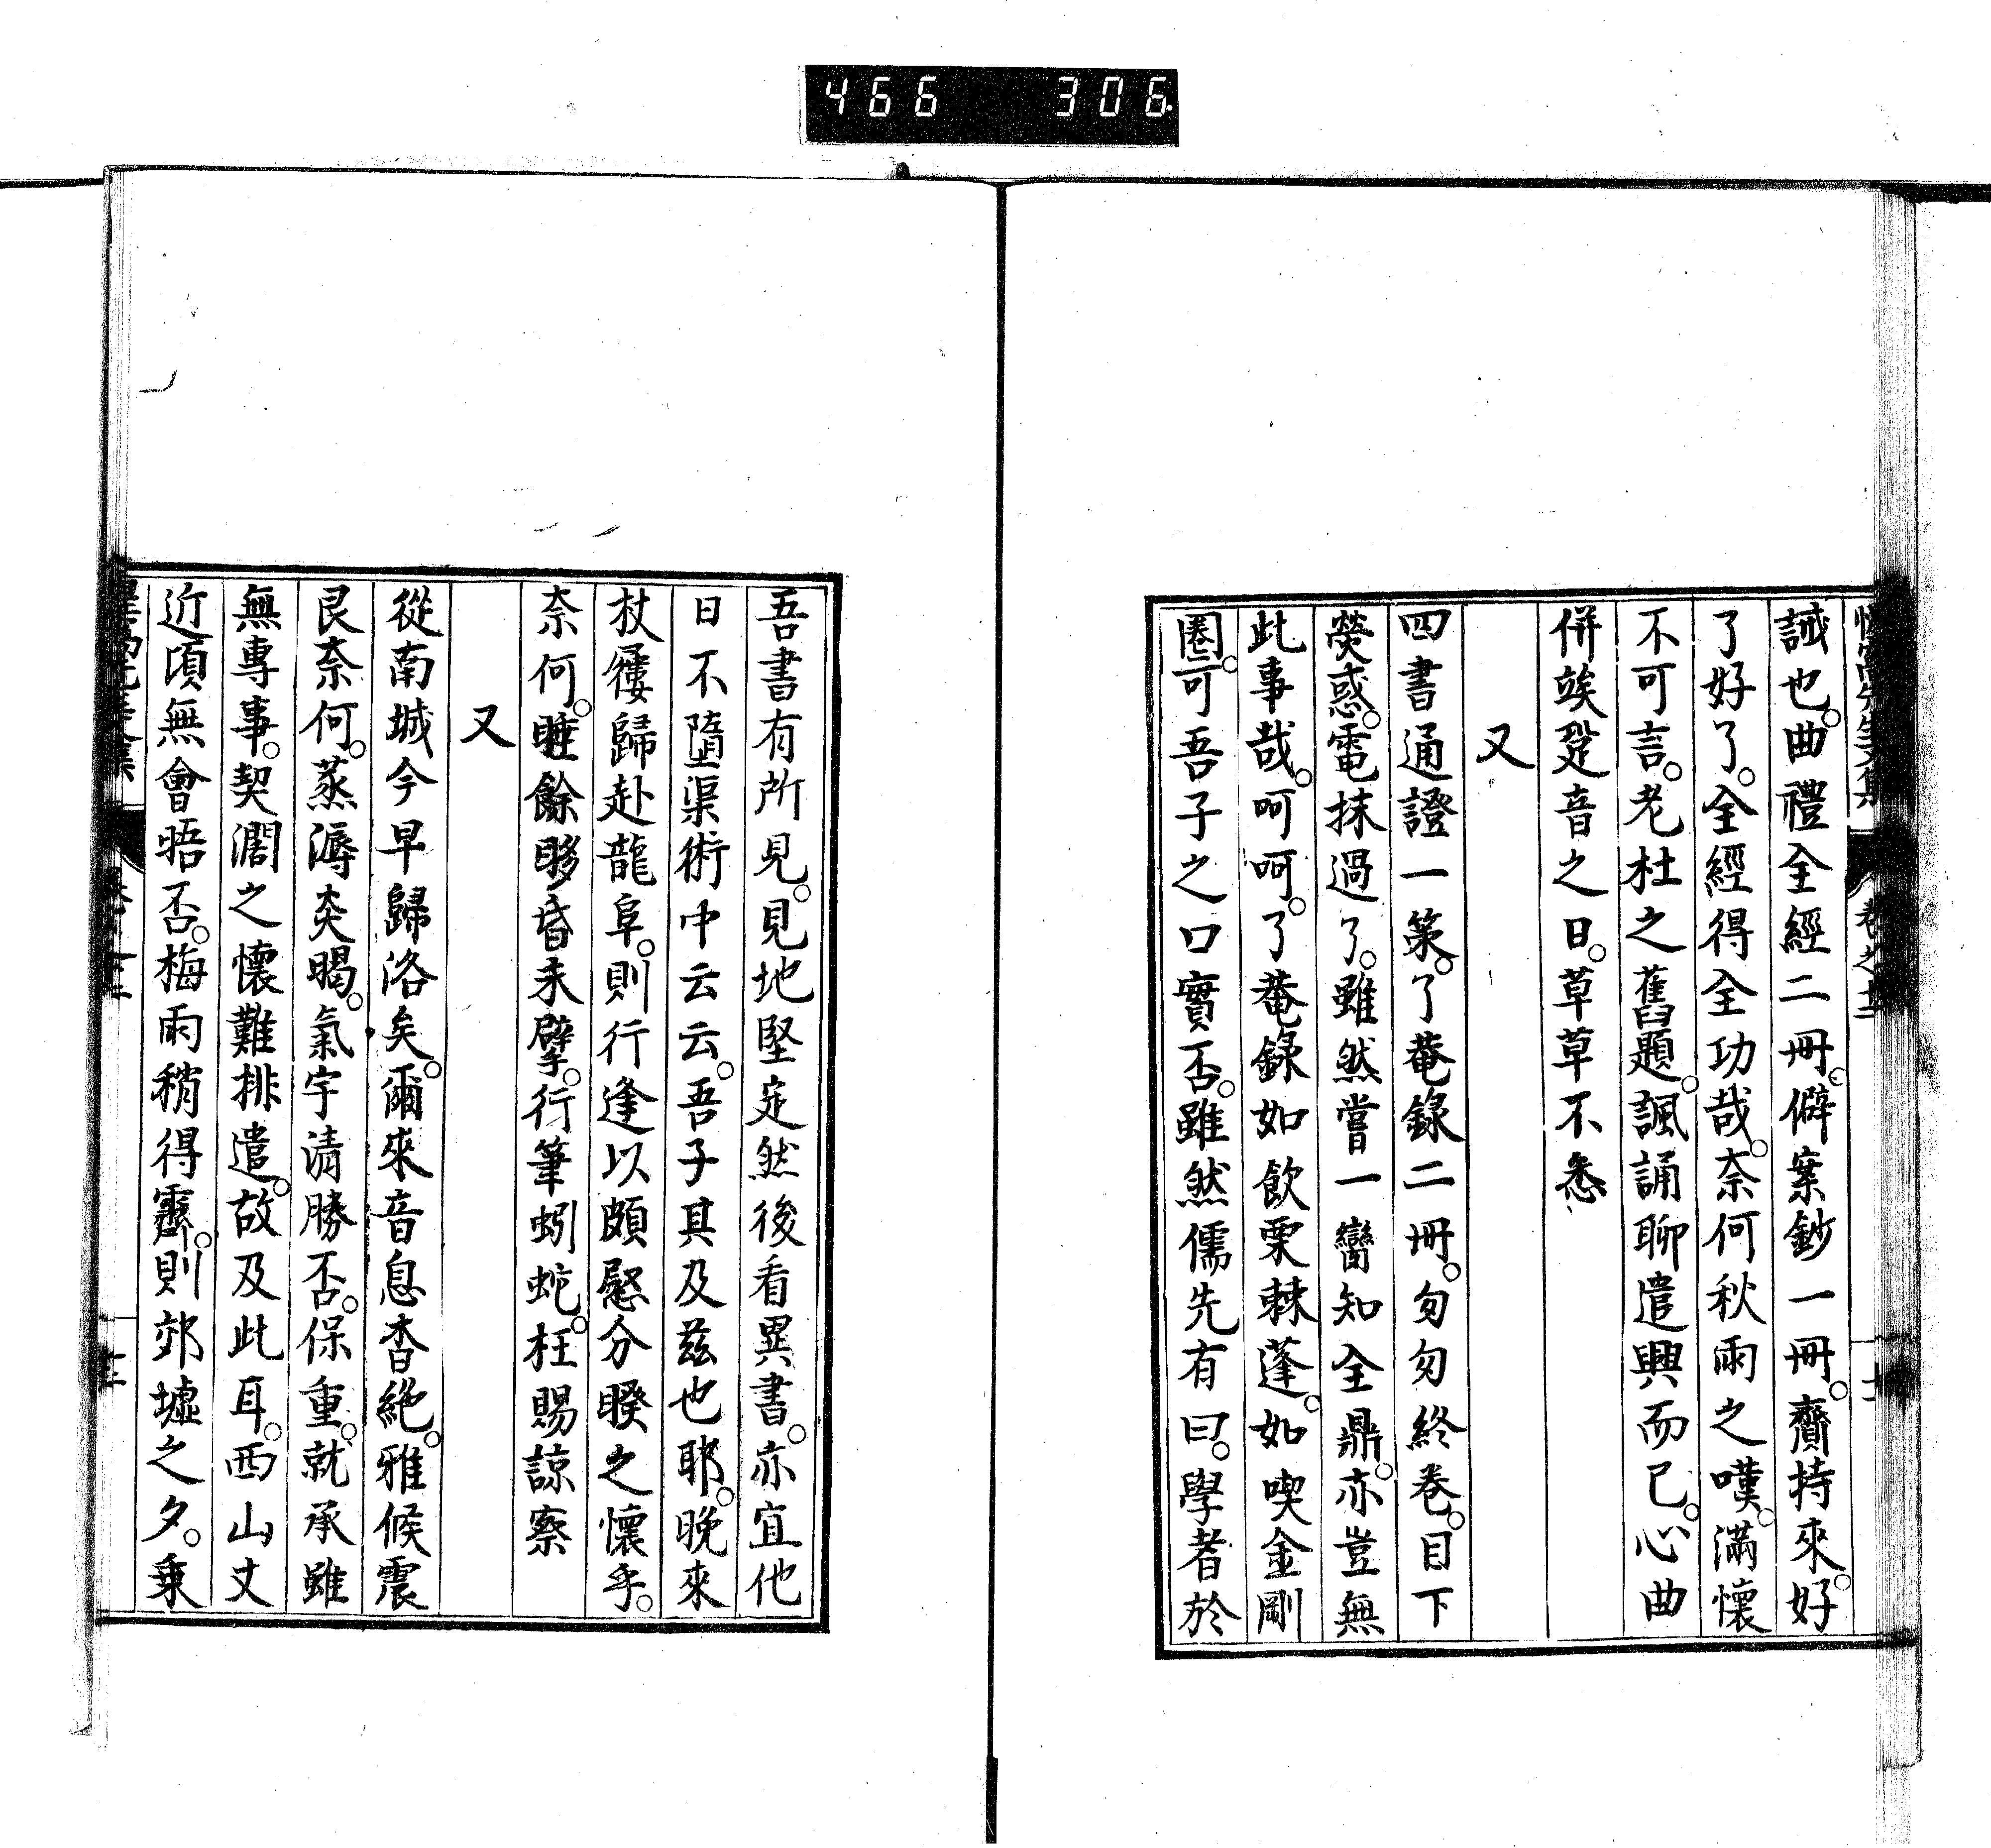 466 306
誡也。曲禮全經二冊。僻案鈔一冊。齎持來。好
了好了。全經得全功哉。奈何秋雨之嘆。滿懷
不可言。老杜之舊題。諷誦聊遣興而已。心曲
併竢跫音之日。草草不悉
又
四書通證一策。了菴錄二冊。匆匆終卷。目下
熒惑。電抹過了。雖然嘗一臠知全鼎。亦豈無
此事哉。呵呵。了菴錄如飲栗棘蓬。如喫金剛
圈。可吾子之口實否。雖然儒先有曰。學者於
吾書有所見。見地堅定然後看異書。亦宜他
日不墮渠術中云云。吾子其及茲也耶。晚來
杖屨歸赴龍阜。則行逢以頗慰分睽之懷乎。
奈何。睡餘眵昏未擘。行筆蚓蛇。枉賜諒察
又
從南城今早歸洛矣。爾來音息杳絕。雅候震
艮奈何。蒸溽炎暍。氣宇淸勝否。保重。就承雖
無專事。契濶之懷難排遣。故及此耳。西山丈
近頃無會晤否。梅雨稍得霽。則郊墟之夕。乗